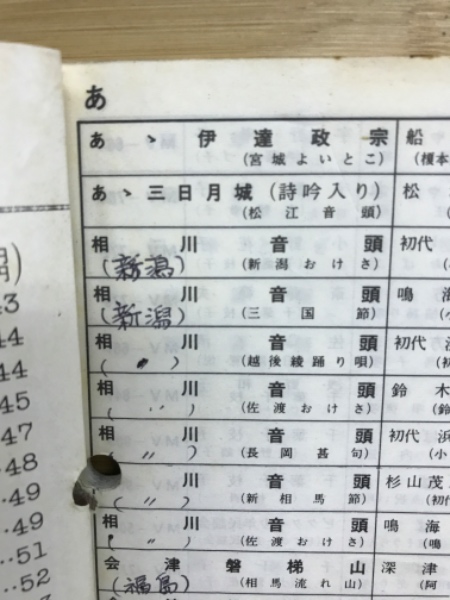 あ
あゝ伊達政宗
(宮城よいとこ)
船
(榎本
あゝ三日月城(詩吟入り)
(松江音頭)
松
相川音頭
(新潟)
(新潟おけさ)
初代
相川音頭
(新潟)
(三国節)
鳴海
(小
相川音頭
(〃)
(越後綾踊り唄)
初代
(初
相川音頭
(〃)
(佐渡おけさ)
鈴木
(鈴
相川音頭
(〃)
(長岡甚句)
初代浜
(小
相川音頭
(〃)
(新相馬節)
杉山茂
(初代
相川音頭
(〃)
(佐渡おけさ)
鳴海
(鳴
会津磐梯山
(福島)
(相馬流れ山)
深津
(阿
43
44
44
‥45
‥47
‥48
‥49
‥49
‥51
‥52